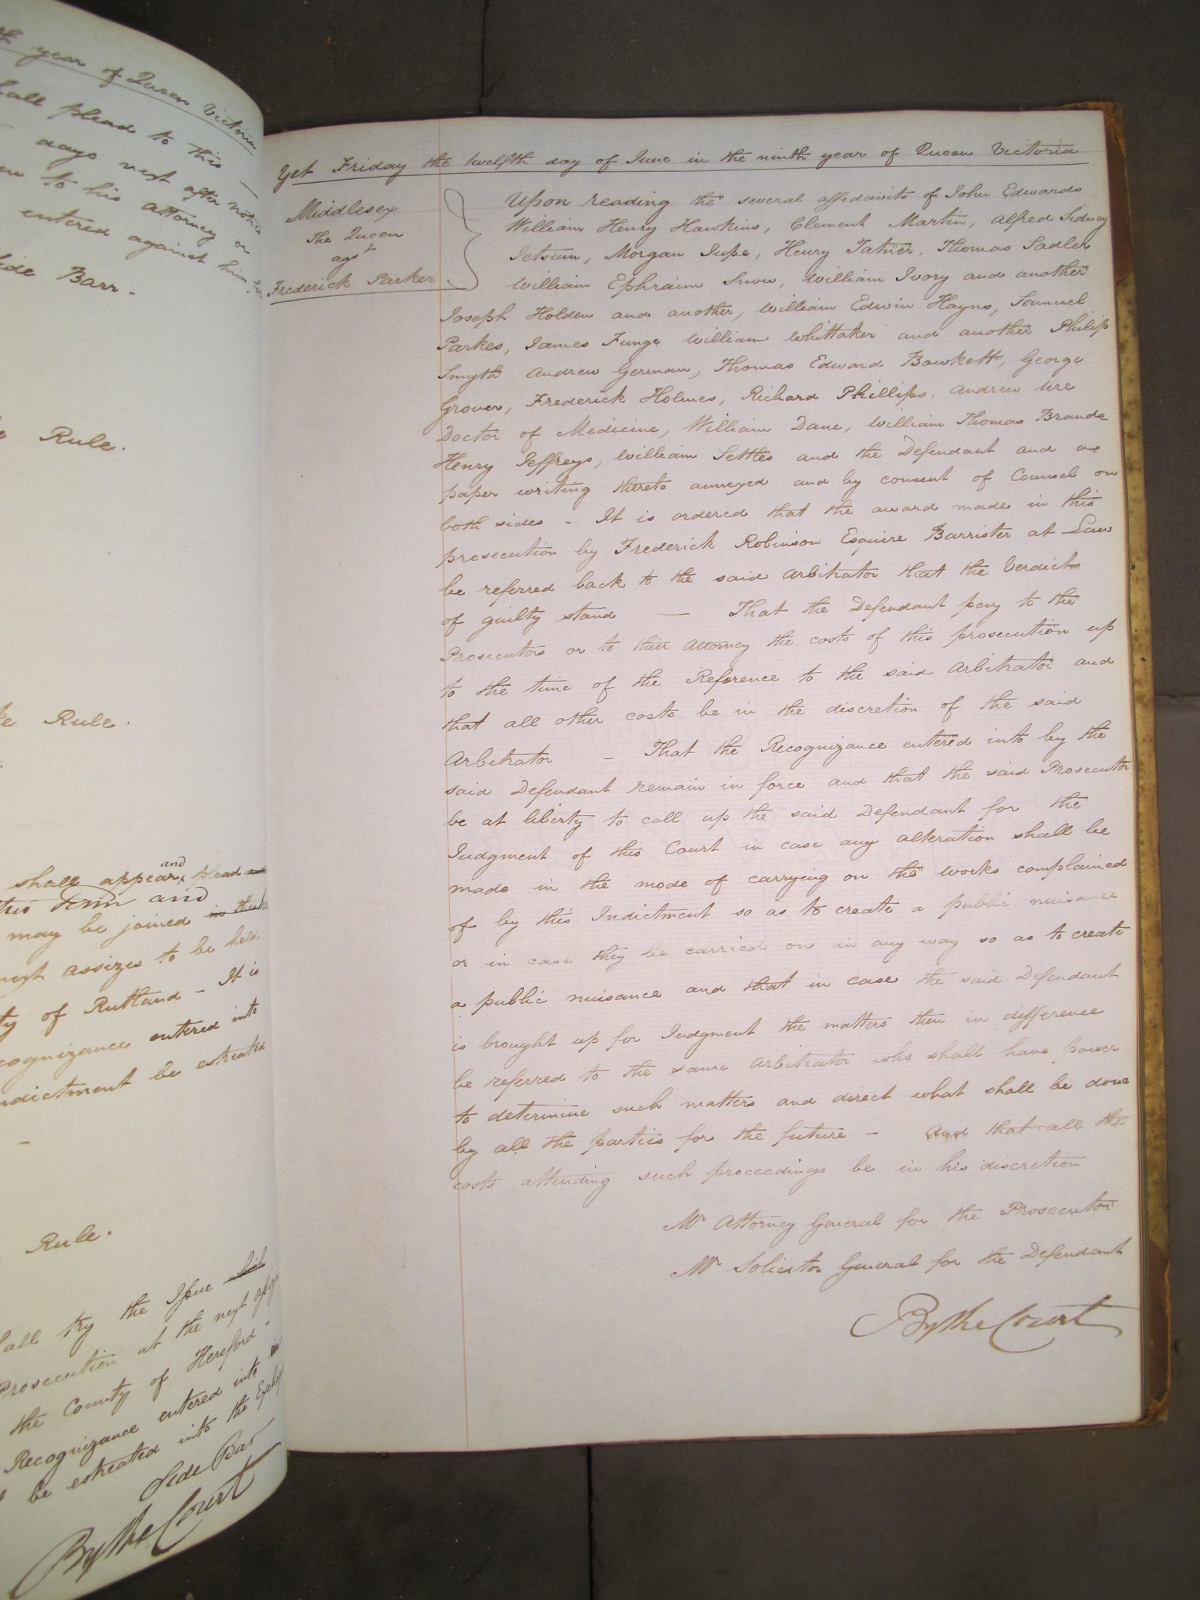 year of Queen Victoria
shall plead to this
days next after notice
to his attorney or
entered against him
Side Barr.
Rule.
Rule.
and
shall appear plead
this term and
may be joined in this
next assizes to be held
of Rutland - It is
Recognizance entered into
Indictment be estreated
Rule.
shall try the Issue
Prosecution at the next
the County of Hereford -
Recognizance entered into
be estreated into the
Side Bar
By the Court
Yet Friday the twelfth day of June in the ninth year of Queen Victoria
Middlesex
The Queen
agt
Frederick Parker
Upon reading the several affidavits of John Edwards
William Henry Hawkins, Clement Martin, Alfred Sidney
Jetsum, Morgan Jupe, Henry Tatner, Thomas Sadler
William Ephraim Snow, William Ivory and another
Joseph Holden and another, William Edwin Hayns, Samuel
Parkes, James Funge William Whittaker and another Philip
Smyth Andrew German, Thomas Edward Bowkett, George
Grover, Frederick Holmes, Richard Phillips, Andrew Ure
Doctor of Medicine, William Dane, William Thomas Brande
Henry Jeffreys, William Settles and the Defendant and a
paper writing thereto annexed and by consent of Counsel on
both sides - It is ordered that the award made in this
prosecution by Frederick Robinson Esquire Barrister at Law
be referred back to the said Arbitrator that the Verdict
of guilty stand — That the Defendant pay to the
Prosecutors or to their Attorney the costs of this prosecution up
to the time of the Reference to the said Arbitrator and
that all other costs be in the discretion of the said
Arbitrator - That the Recognizance entered into by the
said Defendant remain in force and that the said Prosecutor
be at liberty to call up the said Defendant for the
Judgment of this Court in case any alteration shall be
made in the mode of carrying on the works complained
of by this Indictment so as to create a public nuisance
or in case they be carried on in any way so as to create
a public nuisance and that in case the said Defendant
is brought up for Judgment the matters then in difference
be referred to the same Arbitrator who shall have power
to determine such matters and direct what shall be done
by all the parties for the future - And that all the
costs attending such proceedings be in his discretion
Mr Attorney General for the Prosecutor
Mr Solicitor General for the Defendant
By the Court